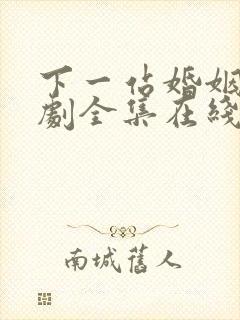 下一佔婚姻
劇全集在綫
南城舊人